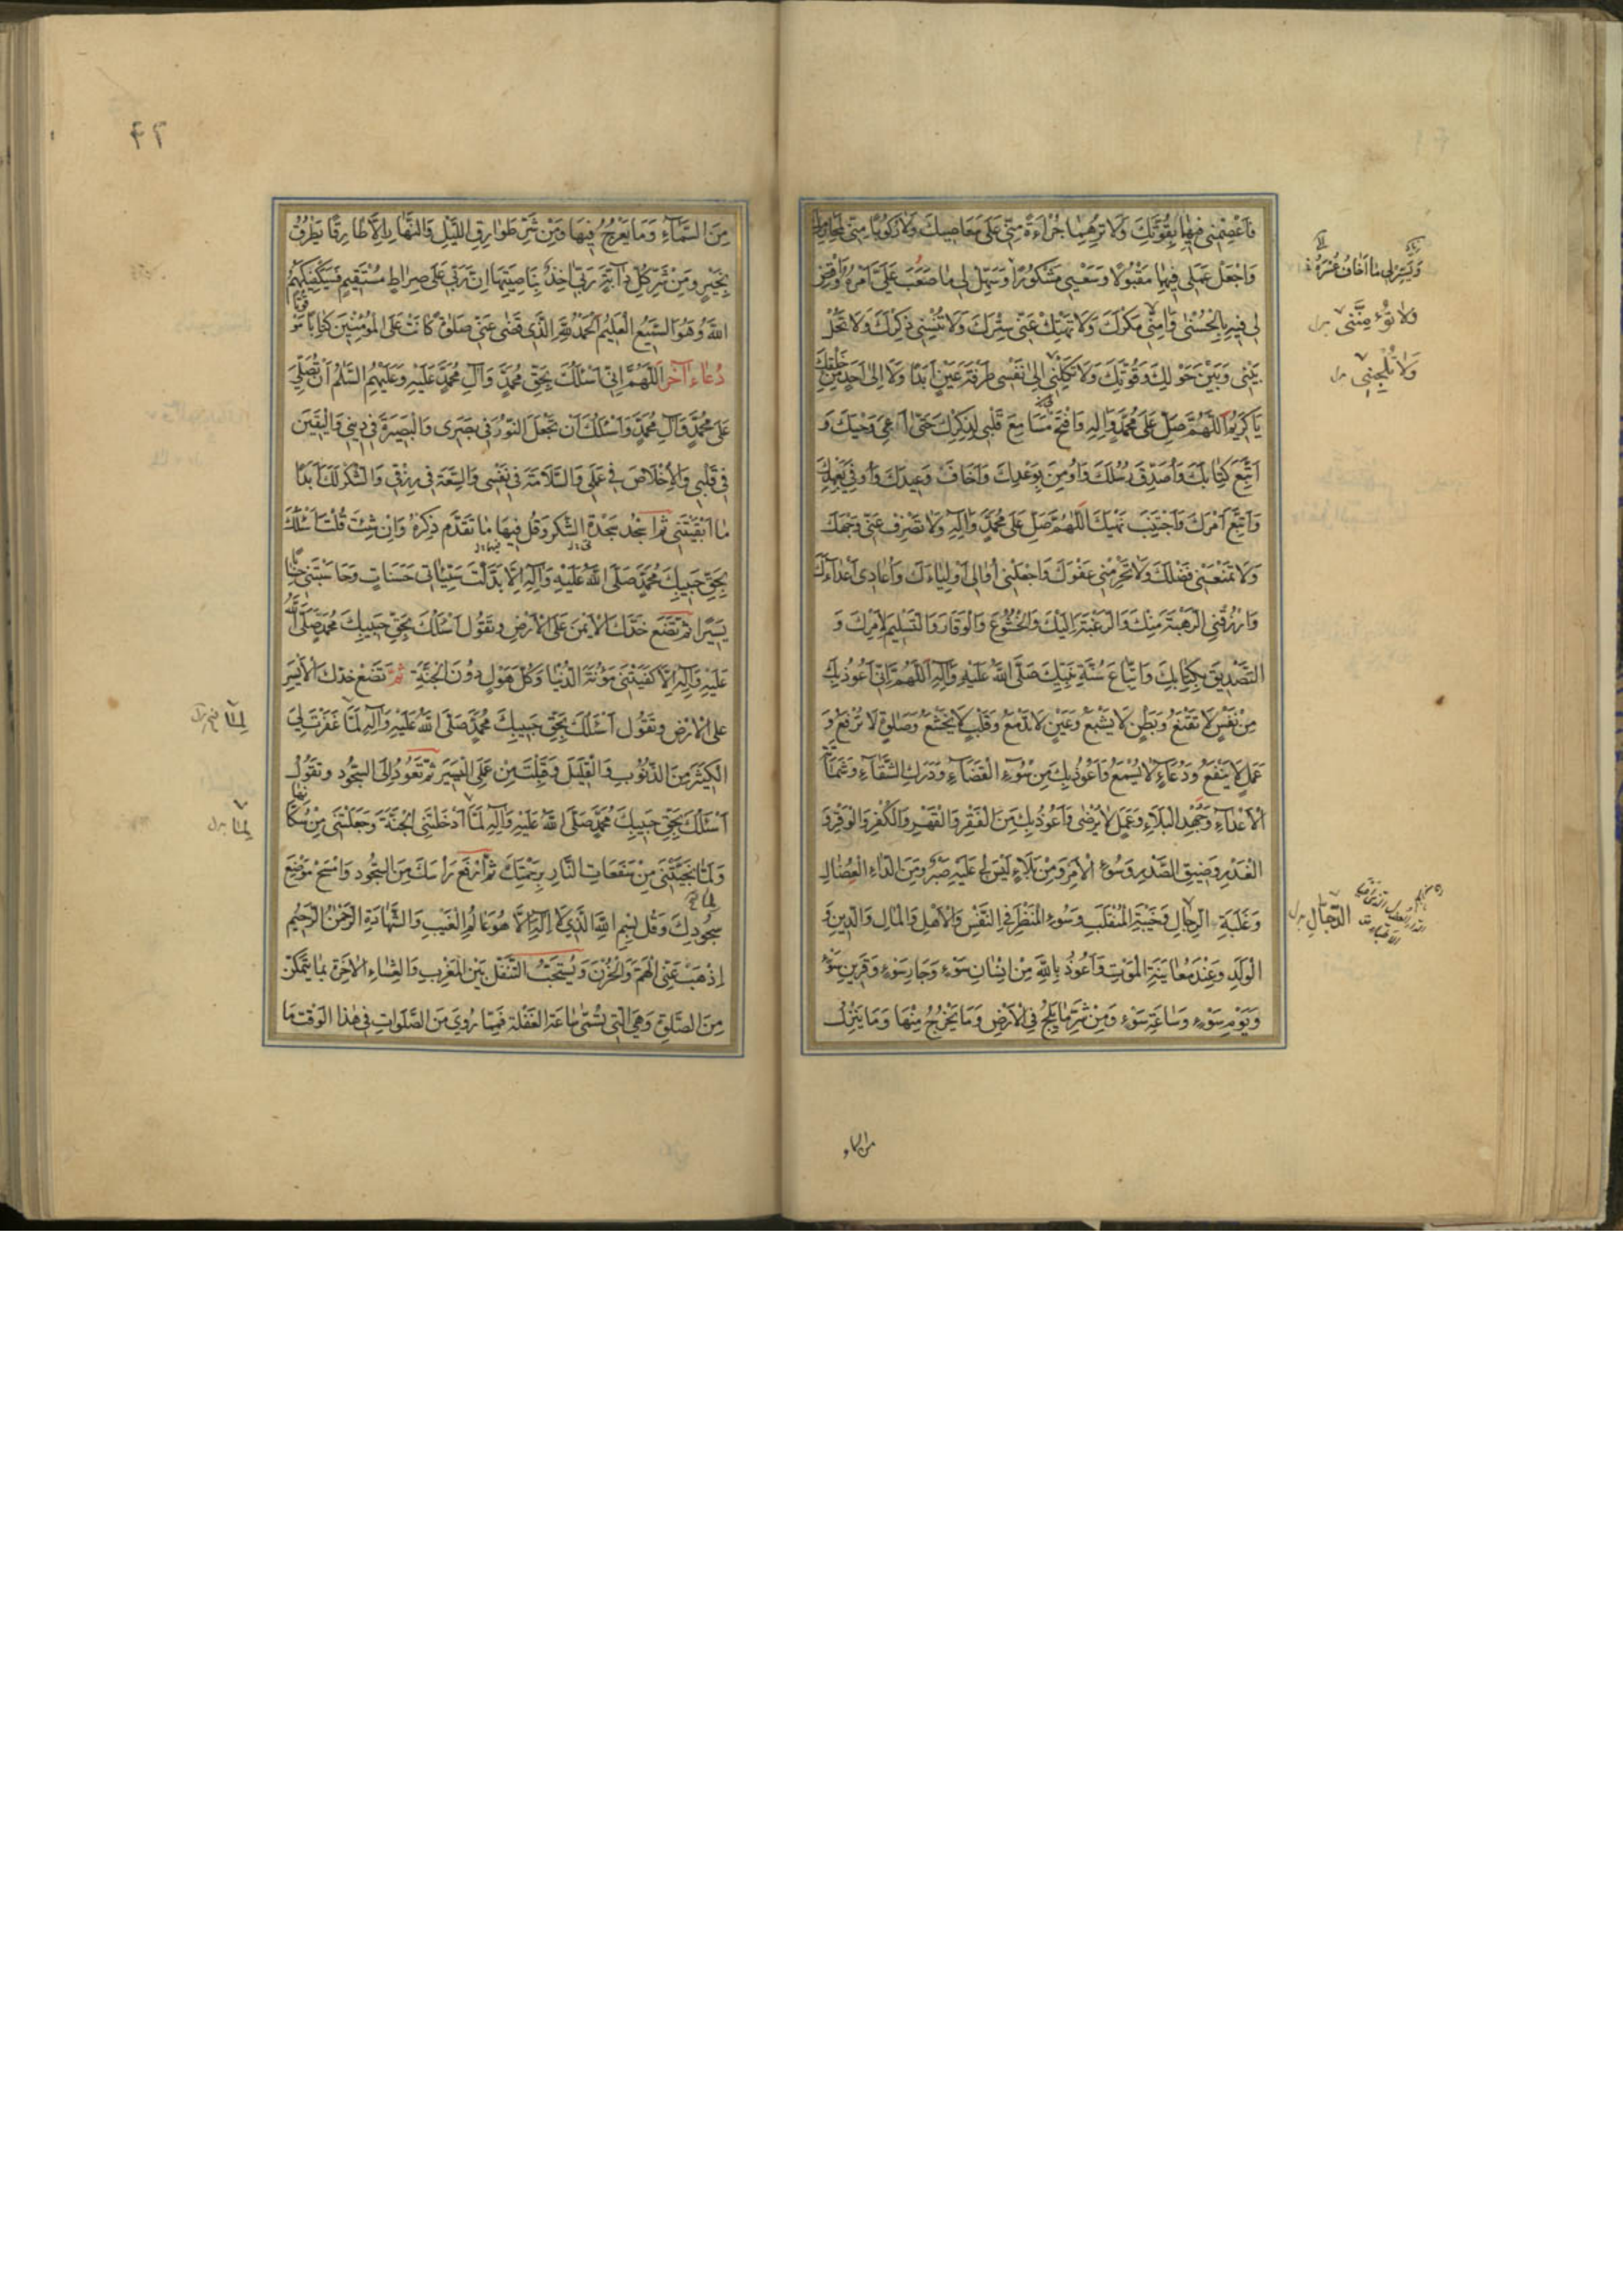 فَاعْصِمْنِي فِيهَا بِقُوَّتِكَ وَلَا تُرِهِمَا جُرْأَةً مِنِّي عَلَى مَعَاصِيكَ وَلَا رُكُوبًا مِنِّي لِمَحَارِمِكَ
وَاجْعَلْ عَمَلِي فِيهِمَا مَقْبُولًا وَسَعْيِي مَشْكُورًا وَسَهِّلْ لِي مَا صَعُبَ عَلَيَّ أَمْرُهُ وَاقْضِ
لِي فِيهِ بِالْحُسْنَى وَآمِنِّي مَكْرَكَ وَلَا تَهْتِكْ عَنِّي سِتْرَكَ وَلَا تُنْسِنِي ذِكْرَكَ وَلَا تَحُلْ
بَيْنِي وَبَيْنَ حَوْلِكَ وَقُوَّتِكَ وَلَا تَكِلْنِي إِلَى نَفْسِي طَرْفَةَ عَيْنٍ أَبَدًا وَلَا إِلَى أَحَدٍ مِنْ خَلْقِكَ
يَا كَرِيمُ اللَّهُمَّ صَلِّ عَلَى مُحَمَّدٍ وَآلِهِ وَافْتَحْ مَسَامِعَ قَلْبِي لِذِكْرِكَ حَتَّى أَعِيَ وَحْيَكَ وَ
أَتَّبِعَ كِتَابَكَ وَأُصَدِّقَ رُسُلَكَ وَأُومِنَ بِوَعْدِكَ وَأَخَافَ وَعِيدَكَ وَأُوفِيَ بِعَهْدِكَ
وَأَتَّبِعَ أَمْرَكَ وَأَجْتَنِبَ نَهْيَكَ اللَّهُمَّ صَلِّ عَلَى مُحَمَّدٍ وَآلِهِ وَلَا تَصْرِفْ عَنِّي وَجْهَكَ
وَلَا تَمْنَعْنِي فَضْلَكَ وَلَا تَحْرِمْنِي عَفْوَكَ وَاجْعَلْنِي أُوَالِي أَوْلِيَاءَكَ وَأُعَادِي أَعْدَاءَكَ
وَارْزُقْنِي الرَّهْبَةَ مِنْكَ وَالرَّغْبَةَ إِلَيْكَ وَالْخُشُوعَ وَالْوَقَارَ وَالتَّسْلِيمَ لِأَمْرِكَ وَ
التَّصْدِيقَ بِكِتَابِكَ وَاتِّبَاعَ سُنَّةِ نَبِيِّكَ صَلَّى اللَّهُ عَلَيْهِ وَآلِهِ اللَّهُمَّ إِنِّي أَعُوذُ بِكَ
مِنْ نَفْسٍ لَا تَقْنَعُ وَبَطْنٍ لَا يَشْبَعُ وَعَيْنٍ لَا تَدْمَعُ وَقَلْبٍ لَا يَخْشَعُ وَصَلَوةٍ لَا تُرْفَعُ وَ
عَمَلٍ لَا يَنْفَعُ وَدُعَاءٍ لَا يُسْمَعُ وَأَعُوذُ بِكَ مِنْ سُوءِ الْقَضَاءِ وَدَرَكِ الشَّقَاءِ وَشَمَاتَةِ
الْأَعْدَاءِ وَجُهْدِ الْبَلَاءِ وَعَمَلٍ لَا يُرْضَى وَأَعُوذُ بِكَ مِنَ الْفَقْرِ وَالْقَهْرِ وَالْكُفْرِ وَالْوَقْرِ وَ
الْغَدْرِ وَضِيقِ الصَّدْرِ وَسُوءِ الْأَمْرِ وَمِنْ بَلَاءٍ لَيْسَ لِي عَلَيْهِ صَبْرٌ وَمِنَ الدَّاءِ الْعُضَالِ
وَغَلَبَةِ الرِّجَالِ وَخَيْبَةِ الْمُنْقَلَبِ وَسُوءِ الْمَنْظَرِ فِي النَّفْسِ وَالْأَهْلِ وَالْمَالِ وَالدِّينِ وَ
الْوَلَدِ وَعِنْدَ مُعَايَنَةِ الْمَوْتِ وَأَعُوذُ بِاللَّهِ مِنْ إِنْسَانِ سَوْءٍ وَجَارِ سَوْءٍ وَقَرِينِ سَوْءٍ
وَيَوْمِ سَوْءٍ وَسَاعَةِ سَوْءٍ وَمِنْ شَرِّ مَا يَلِجُ فِي الْأَرْضِ وَمَا يَخْرُجُ مِنْهَا وَمَا يَنْزِلُ
من السماء
وَيَسِّرْ لِي مَا أَخَافُ عُسْرَهُ
وَلَا تُؤْمِنِّي
وَلَا تُلْجِئْنِي
الدَّجَّالِ
٤٢
مِنَ السَّمَاءِ وَمَا يَعْرُجُ فِيهَا وَمِنْ شَرِّ طَوَارِقِ اللَّيْلِ وَالنَّهَارِ إِلَّا طَارِقًا يَطْرُقُ
بِخَيْرٍ وَمِنْ شَرِّ كُلِّ دَابَّةٍ رَبِّي آخِذٌ بِنَاصِيَتِهَا إِنَّ رَبِّي عَلَى صِرَاطٍ مُسْتَقِيمٍ فَسَيَكْفِيكَهُمُ
اللَّهُ وَهُوَ السَّمِيعُ الْعَلِيمُ الْحَمْدُ لِلَّهِ الَّذِي قَضَى عَنِّي صَلَوةً كَانَتْ عَلَى الْمُؤْمِنِينَ كِتَابًا مَوْقُوتًا
دُعَاء آخر اللَّهُمَّ إِنِّي أَسْئَلُكَ بِحَقِّ مُحَمَّدٍ وَآلِ مُحَمَّدٍ عَلَيْهِ وَعَلَيْهِمُ السَّلَامُ أَنْ تُصَلِّيَ
عَلَى مُحَمَّدٍ وَآلِ مُحَمَّدٍ وَأَسْئَلُكَ أَنْ تَجْعَلَ النُّورَ فِي بَصَرِي وَالْبَصِيرَةَ فِي دِينِي وَالْيَقِينَ
فِي قَلْبِي وَالْإِخْلَاصَ فِي عَمَلِي وَالسَّلَامَةَ فِي نَفْسِي وَالسَّعَةَ فِي رِزْقِي وَالشُّكْرَ لَكَ أَبَدًا
مَا أَبْقَيْتَنِي ثم اسجد سجدة الشكر وقل فيها ما تقدم ذكره وان شئت قلت أَسْئَلُكَ
بِحَقِّ حَبِيبِكَ مُحَمَّدٍ صَلَّى اللَّهُ عَلَيْهِ وَآلِهِ إِلَّا بَدَّلْتَ سَيِّئَاتِي حَسَنَاتٍ وَحَاسَبْتَنِي حِسَابًا
يَسِيرًا ثم تضع خدك الأيمن على الأرض وتقول أَسْئَلُكَ بِحَقِّ حَبِيبِكَ مُحَمَّدٍ صَلَّى اللَّهُ
عَلَيْهِ وَآلِهِ إِلَّا كَفَيْتَنِي مَؤُنَةَ الدُّنْيَا وَكُلَّ هَوْلٍ دُونَ الْجَنَّةِ ثم تضع خدك الأيسر
على الأرض وتقول أَسْئَلُكَ بِحَقِّ حَبِيبِكَ مُحَمَّدٍ صَلَّى اللَّهُ عَلَيْهِ وَآلِهِ لَمَّا غَفَرْتَ لِيَ
الْكَثِيرَ مِنَ الذُّنُوبِ وَالْقَلِيلَ وَقَبِلْتَ مِنْ عَمَلِيَ الْيَسِيرَ ثم تعود إلى السجود وتقول
أَسْئَلُكَ بِحَقِّ حَبِيبِكَ مُحَمَّدٍ صَلَّى اللَّهُ عَلَيْهِ وَآلِهِ لَمَّا أَدْخَلْتَنِي الْجَنَّةَ وَجَعَلْتَنِي مِنْ سُكَّانِهَا
وَلَمَّا نَجَّيْتَنِي مِنْ سَفَعَاتِ النَّارِ بِرَحْمَتِكَ ثم ارفع رأسك من السجود وامسح موضع
سجودك وقل بِسْمِ اللَّهِ الَّذِي لَا إِلَهَ إِلَّا هُوَ عَالِمُ الْغَيْبِ وَالشَّهَادَةِ الرَّحْمَنُ الرَّحِيمُ
اذْهَبْ عَنِّي الْهَمَّ وَالْحُزْنَ ويستحب التنفل بين المغرب والعشاء الآخرة بما يتمكن
من الصلوة وهي التي تسمى ساعة الغفلة فمما روي من الصلوات في هذا الوقت ما
لَمَّا
لَمَّا